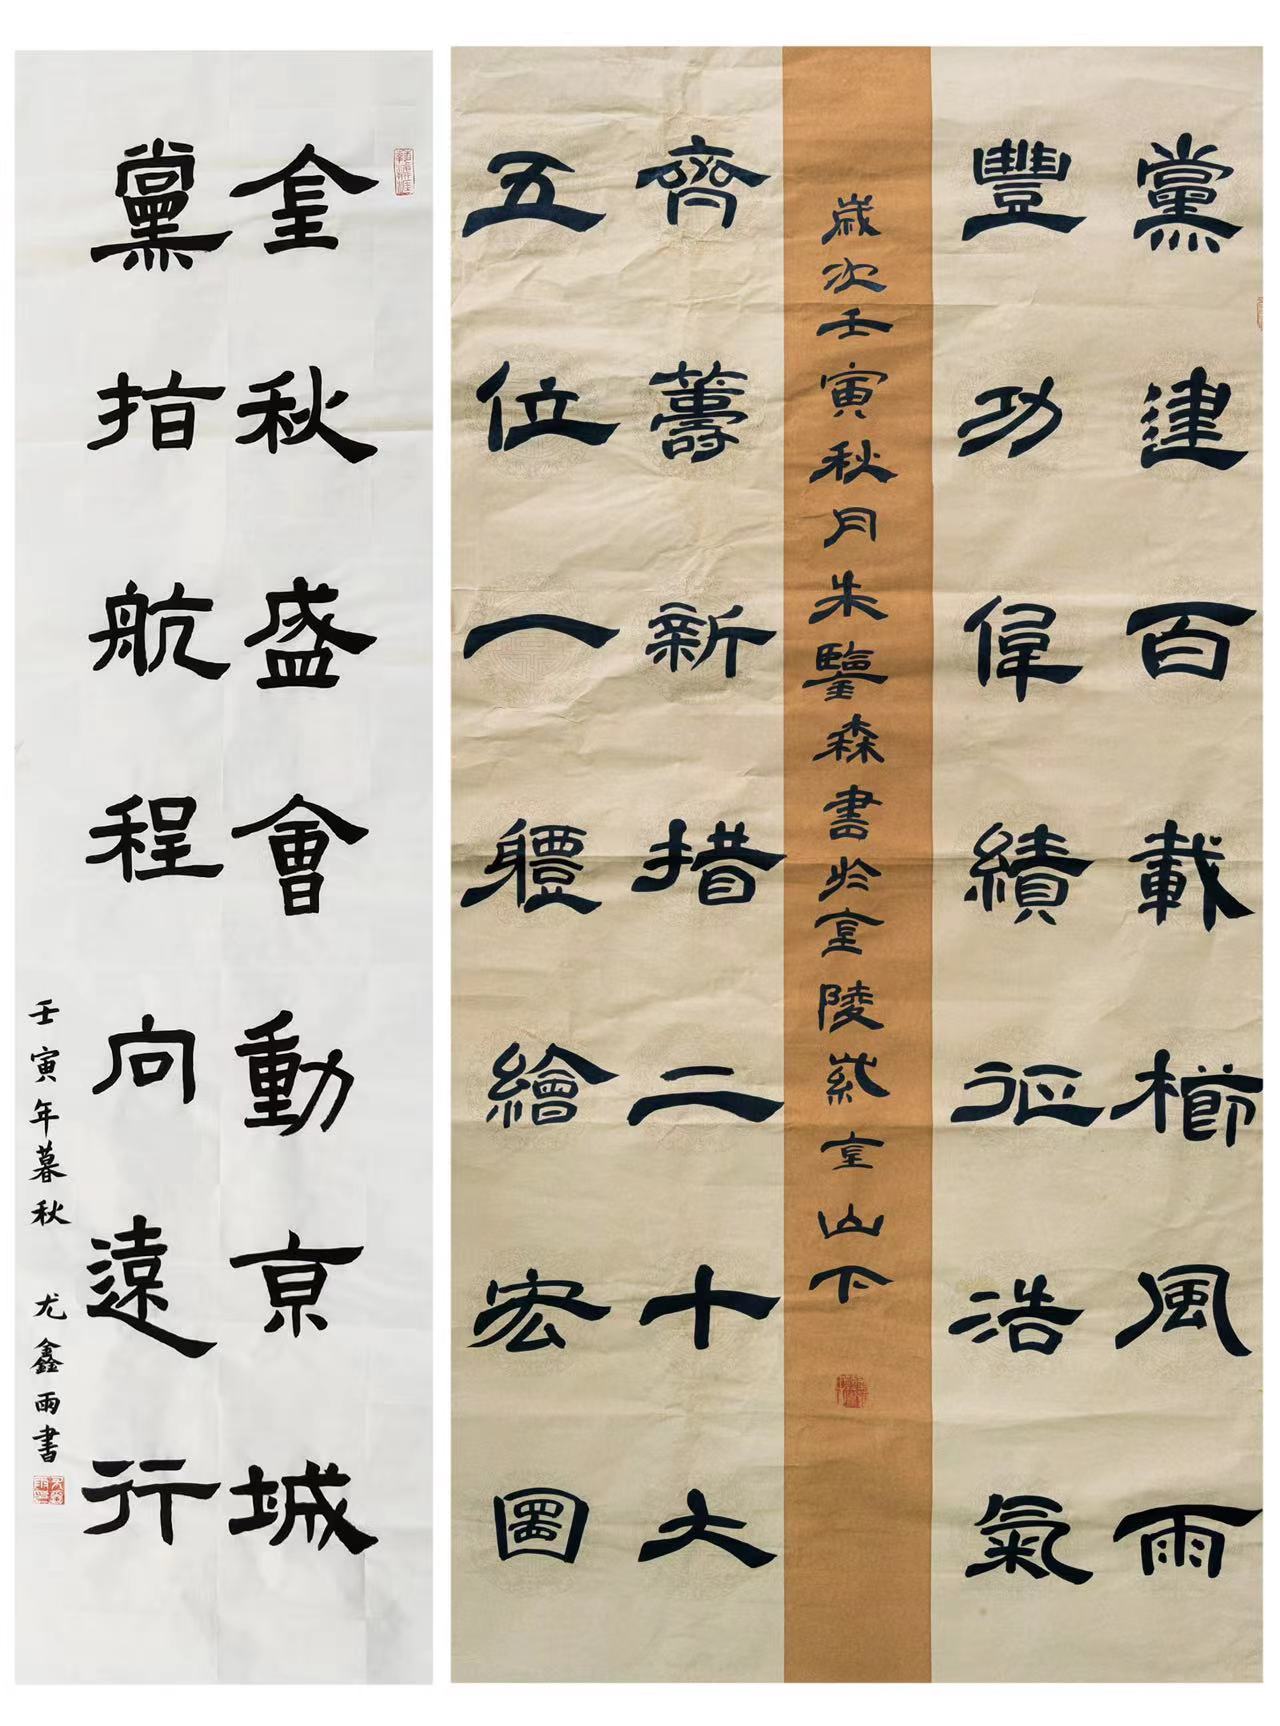 黨建百載櫛風雨
豐功偉績征浩氣
歲次壬寅秋月朱鑒森書於金陵紫金山下
齊籌新措二十大
五位一軆繪宏圖
金秋盛會動京城
黨指航程向遠行
壬寅年暮秋 尤鑫雨書